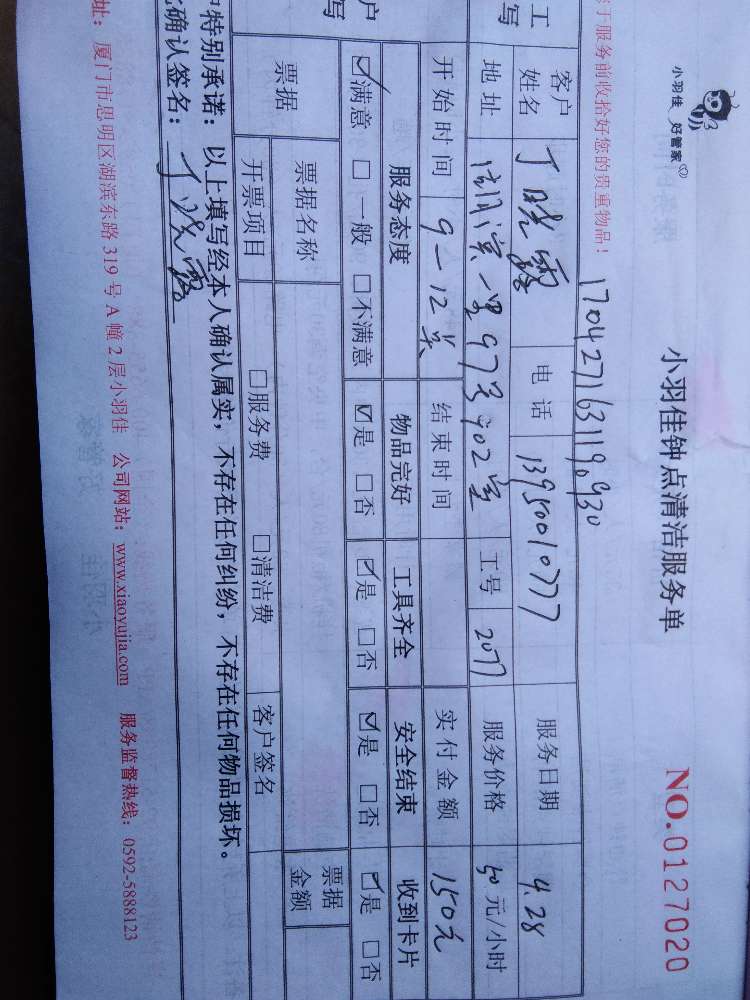 小羽佳 好管家
小羽佳钟点清洁服务单
NO.0127020
于服务前收拾好您的贵重物品!
1704271631190930
工 写
客户姓名 丁晓露 电话 13950010777 服务日期 4.28
地址 湖滨一里97号902室 工号 2077 服务价格 50元/小时
开始时间 9-12 结束时间 实付金额 150元
户 写
服务态度 物品完好 工具齐全 安全结束 收到卡片
☑满意 □一般 □不满意 ☑是 □否 ☑是 □否 ☑是 □否 ☑是 □否
票据 票据名称 票据金额
开票项目 □服务费 □清洁费 客户签名
特别承诺:以上填写经本人确认属实,不存在任何纠纷,不存在任何物品损坏。
确认签名:丁晓露
址:厦门市思明区湖滨东路319号A幢2层小羽佳 公司网站:www.xiaoyujia.com 服务监督热线:0592-5888123